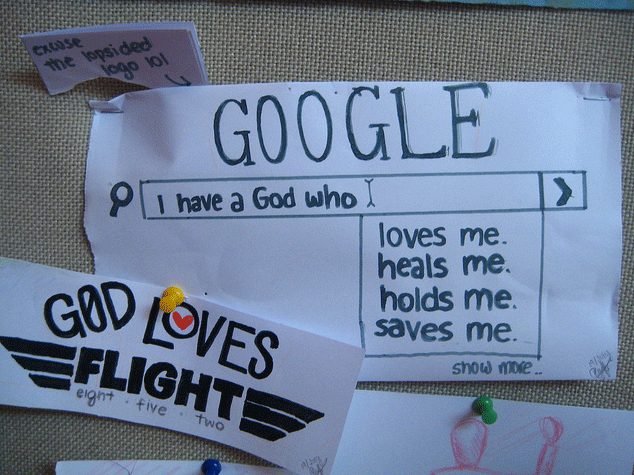 excuse
the lopsided
logo lol
GOOGLE
I have a God who
loves me.
heals me.
holds me.
saves me.
show more..
GOD LOVES
FLIGHT
eight · five · two